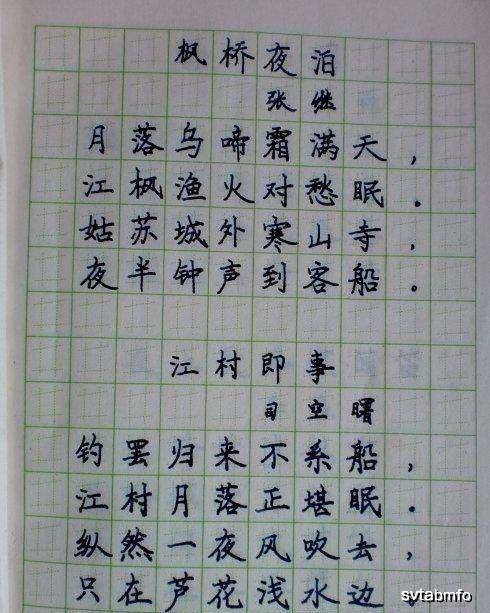 枫桥夜泊
张继
月落乌啼霜满天，
江枫渔火对愁眠。
姑苏城外寒山寺，
夜半钟声到客船。
江村即事
司空曙
钓罢归来不系船，
江村月落正堪眠。
纵然一夜风吹去，
只在芦花浅水边
svtabmfo